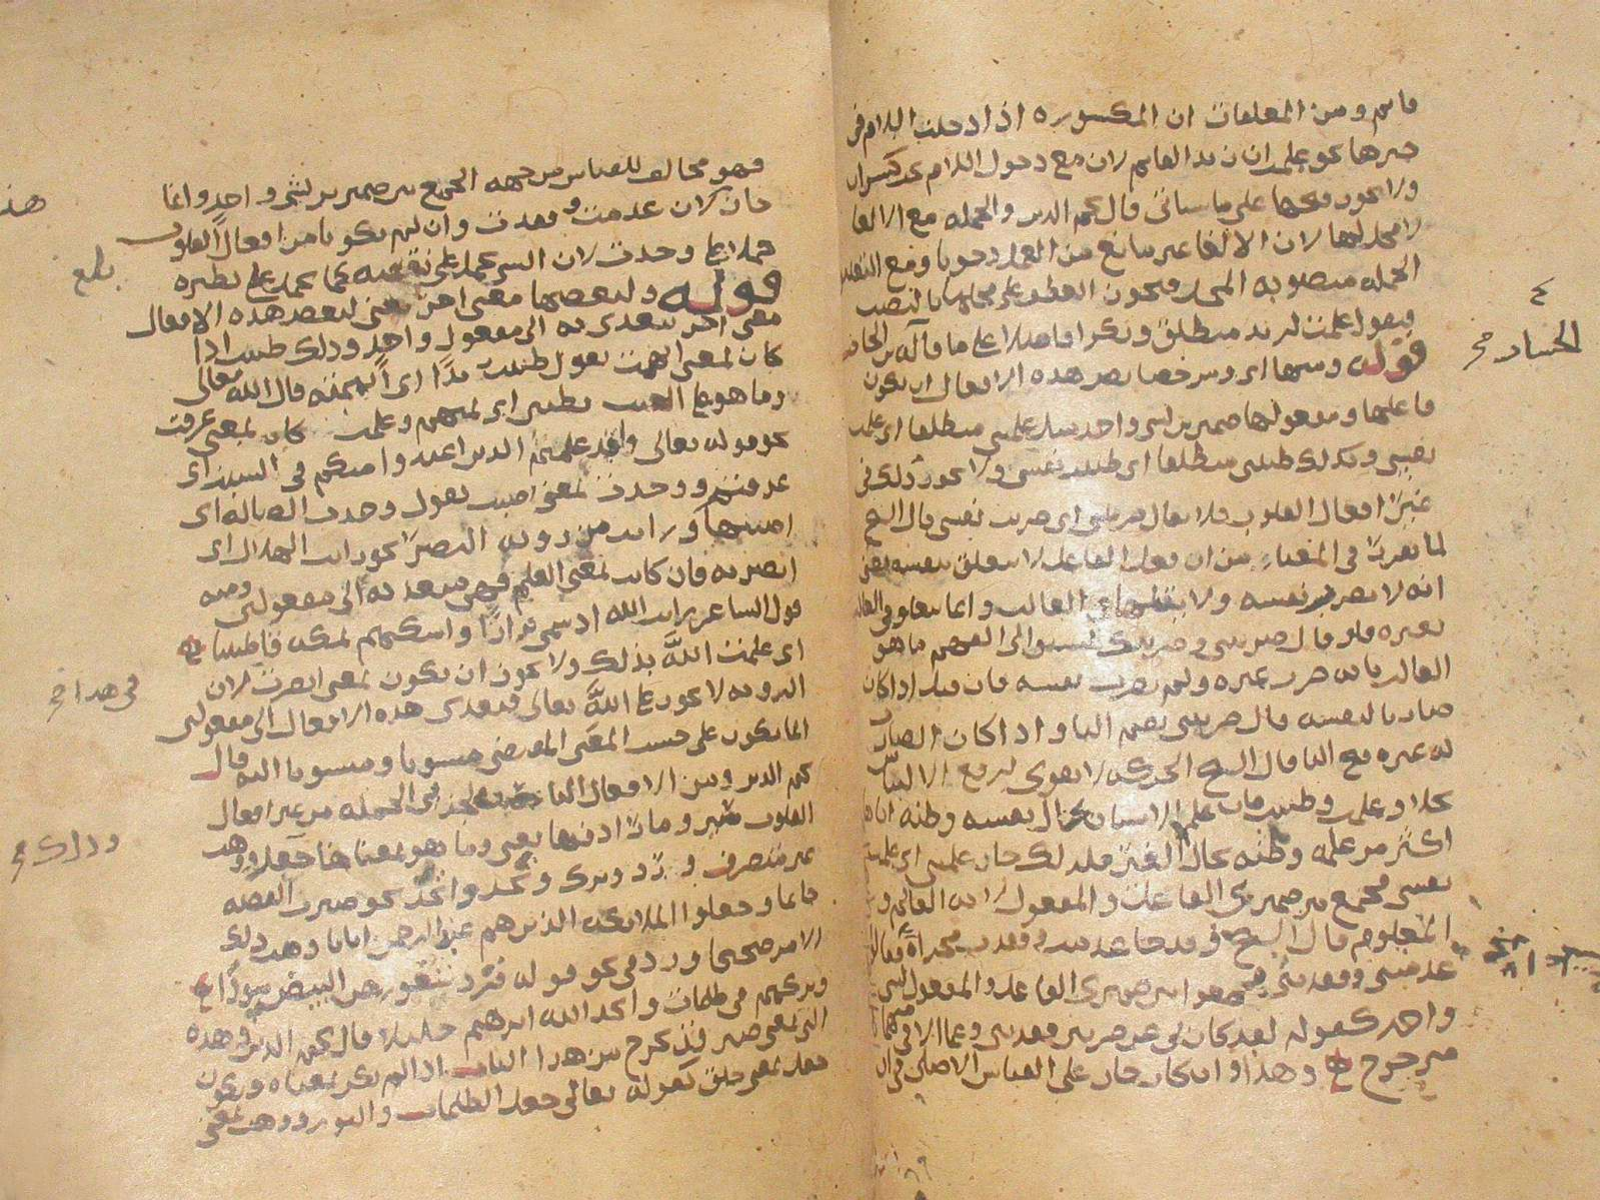 قايم ومن المعلقات ان المكسورة اذا دخلت اللام في
خبرها نحو علمت ان زيدا لقايم لان مع دخول اللام يجب كسران
ولا يجوز فتحها على ما سياتي قال نجم الدين والجمله مع الالغا
لا محل لها لان الالغا غير مانع من العمل وجوبا ومع التعليق
الجمله منصوبه المحل فيجوز العطف على محلها بالنصب
فيقول علمت لزيد منطلق وبكرا فاضلا على ما قاله ابن الخباز
قوله ومنها اي ومن خصايص هذه الافعال ان يكون
فاعلها ومفعولها ضميرين لشي واحد مثل علمتني منطلقا اي علمت
نفسي وكذلك ظننتني منطلقا اي ظننت نفسي ولا يجوز ذلك في
غير افعال القلوب فلا يقال ضربتني اي ضربت نفسي قال الشيخ
لما تقرر في المغنا من ان فعل الفاعل لا يتعلق بنفسه يعني
انه لا يضرب نفسه ولا في الغالب وانما يتعلق في الغالب
بغيره فلو قال ضربتني وضربتك لسبق الى الفهم ما هو
الغالب بانه ضرب غيره ولم يضرب نفسه فان قيل اذا كان
ضاربا لنفسه قال ضربتني بضم التا واذا كان الضارب
له غيره فتح التا قال الشيخ الحركه لا تقوى لرفع الالتباس
بخلاف علمت وظننت فان علم الانسان بحال نفسه وظنه اياها
اكثر من علمه وظنه بحال الغير فلذلك جاز علمتني اي علمت
نفسي فجمع بين ضميري الفاعل والمفعول لانه العالم و
المعلوم قال الشيخ وقد جا عدمت وفقدت مجراه فقالوا
عدمتني وفقدتني فجمعوا بين ضميري الفاعل والمفعول لشي
واحد كقوله لقد كان لي عن ضرتين عدمتني وعما الاقي منهما
متزحزح وهذا وان كان جاز على القياس الاصلي في ان
٤
الخباز
فهو مخالف للقياس من جهه الجمع بين ضميرين لشي واحد وانما
جاز لان عدمت وفقدت وان لم يكونا من افعال القلوب
حملا على وجدت لان الشي يحمل على نقيضه كما يحمل على نظيره
قوله ولبعضها معنى اخر يعني لبعض هذه الافعال
معنى اخر يتعدى به الى مفعول واحد وذلك ظننت اذا
كان بمعنى اتهمت يقول ظننت زيدا اي اتهمته قال الله تعالى
وما هو على الغيب بظنين اي بمتهم وعلمت كان بمعنى عرفت
نحو قوله تعالى ولقد علمتم الذين اعتدوا منكم في السبت اي
عرفتم ووجدت بمعنى اصبت يقول وجدت الضاله اي
اصبتها ورايت من رويه البصر نحو رايت الهلال اي
ابصرته فان كان بمعنى العلم فهي متعديه الى مفعولين ومنه
قول الشاعر رايت الله اذ سمى نزارا واسكنهم بمكه قاطنينا
اي علمت الله بذلك ولا يجوز ان يكون بمعنى ابصرت لان
الرويه لا تجوز على الله تعالى فتعدى هذه الافعال الى مفعولين
انما يكون على حسب المعنى المقتضي منسوبا ومنسوبا اليه قال
نجم الدين ومن الافعال الناصبه لجزئي الجمله من غير افعال
القلوب صير وما رادفها يعني وما هو بمعناها جعل ووهب
غير متصرف ورد وترك وتخذ واتخذ نحو صيرت الفضه
خاتما وجعلوا الملايكه الذين هم عند الرحمن اناثا وهب ذلك
الامر صحيحا ورد في نحو قوله فرد شعورهن البيض سودا
وتركهم في ظلمات واتخذ الله ابرهيم خليلا قال نجم الدين وهذه
التي بمعنى صير قد تخرج من هذا الباب اذا لم يكن بمعناه ويكون
جعل بمعنى خلق كقوله تعالى وجعل الظلمات والنور ووهب بمعنى
بلغ
في هذا
وذلك